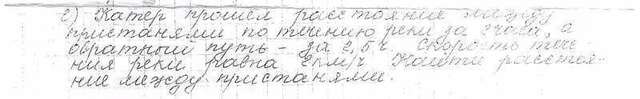 с) Катер прошел расстояние между
пристанями по течению реки за 2 часа, а
обратный путь - за 2,5 ч. Скорость тече-
ния реки равна 2км/ч Найти расстоя-
ние между пристанями.